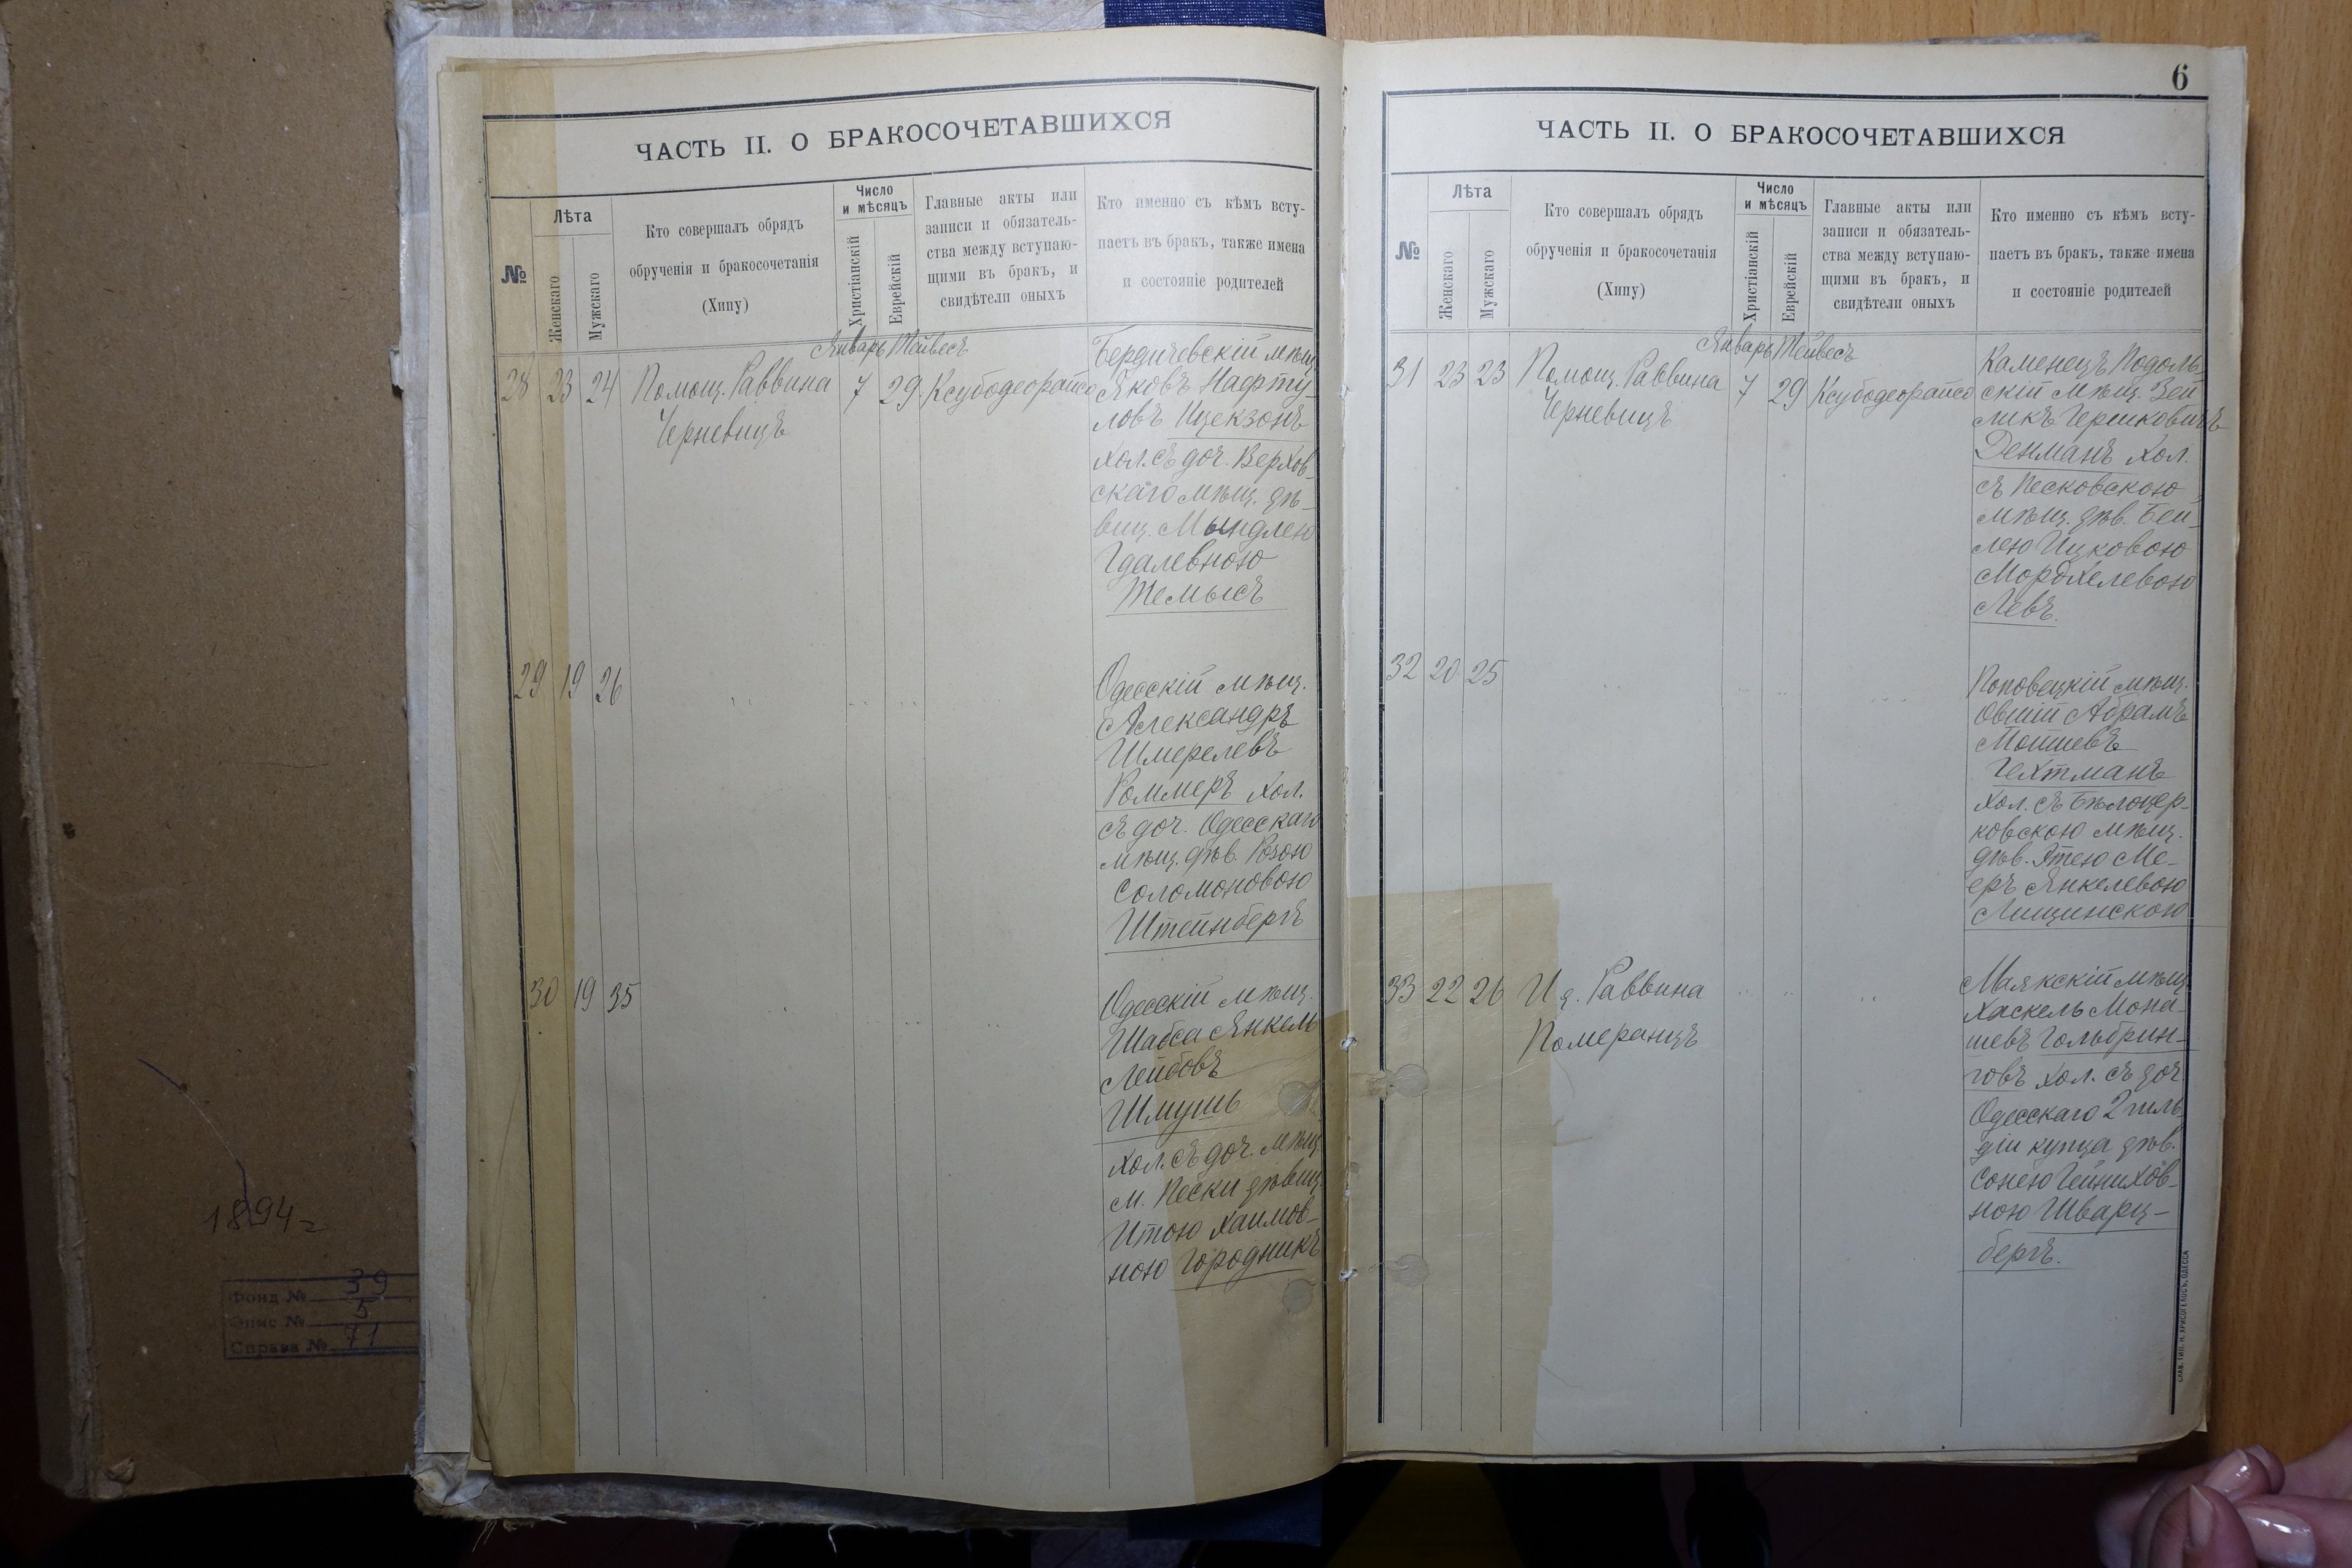 ЧАСТЬ II. О БРАКОСОЧЕТАВШИХСЯ
№
Лѣта
Женскаго
Мужскаго
Кто совершалъ обрядъ
обрученія и бракосочетанія
(Хипу)
Число
и мѣсяцъ
Христіанскій
Еврейскій
Главные акты или
записи и обязатель-
ства между вступаю-
щими въ бракъ, и
свидѣтели оныхъ
Кто именно съ кѣмъ всту-
паетъ въ бракъ, также имена
и состояніе родителей
Январь Тейвесъ
28 23 24 Помощ. Раввина 7 29 Ксубодеорайсо
Черневицъ
Бердичевскій мѣщ.
Яковъ Нафту-
ловъ Ицекзонъ
хол. съ доч. Верхов-
скаго мѣщ. дѣ-
виц. Мындлею
Гдалевною
Темысъ
29 19 26
Одесскій мѣщ.
Александръ
Шмерелевъ
Роммеръ хол.
съ доч. Одесскаго
мѣщ. дѣв. Розою
Соломоновою
Штейнбергъ
30 19 35
Одесскій мѣщ.
Шабса Янкель
Лейбовъ
Шмушь
хол. съ доч. мѣщ.
м. Пески дѣвиц.
Итою Хаимов-
ною Городникъ
6
ЧАСТЬ II. О БРАКОСОЧЕТАВШИХСЯ
№
Лѣта
Женскаго
Мужскаго
Кто совершалъ обрядъ
обрученія и бракосочетанія
(Хипу)
Число
и мѣсяцъ
Христіанскій
Еврейскій
Главные акты или
записи и обязатель-
ства между вступаю-
щими въ бракъ, и
свидѣтели оныхъ
Кто именно съ кѣмъ всту-
паетъ въ бракъ, также имена
и состояніе родителей
Январь Тейвесъ
31 23 23 Помощ. Раввина 7 29 Ксубодеорайсо
Черневицъ
Каменецъ Подоль-
скій мѣщ. Зей
ликъ Гершковичъ
Денманъ хол.
съ Песковскою
мѣщ. дѣв. Бей-
лею Ицковою
Мордхелевою
Левъ.
32 20 25
Поповецкій мѣщ.
Овший Абрамъ
Мошиевъ
Гехтманъ
хол. съ Бѣлоцер-
ковскою мѣщ.
дѣв. Этею Ме-
еръ Янкелевою
Лищинскою
33 22 26 И д. Раввина
Померанцъ
Маякскій мѣщ.
Хаскель Мона-
шевъ Гольбрин-
говъ хол. съ доч.
Одесскаго 2 гиль
діи купца дѣв.
Сонею Гейнихов-
ною Шварц-
бергъ.
СЛАВ. ТИП. Н. ХРИСОГЕЛОСЪ, ОДЕССА
1894 г
Фонд № 39
Опис № 5
Справа № 71